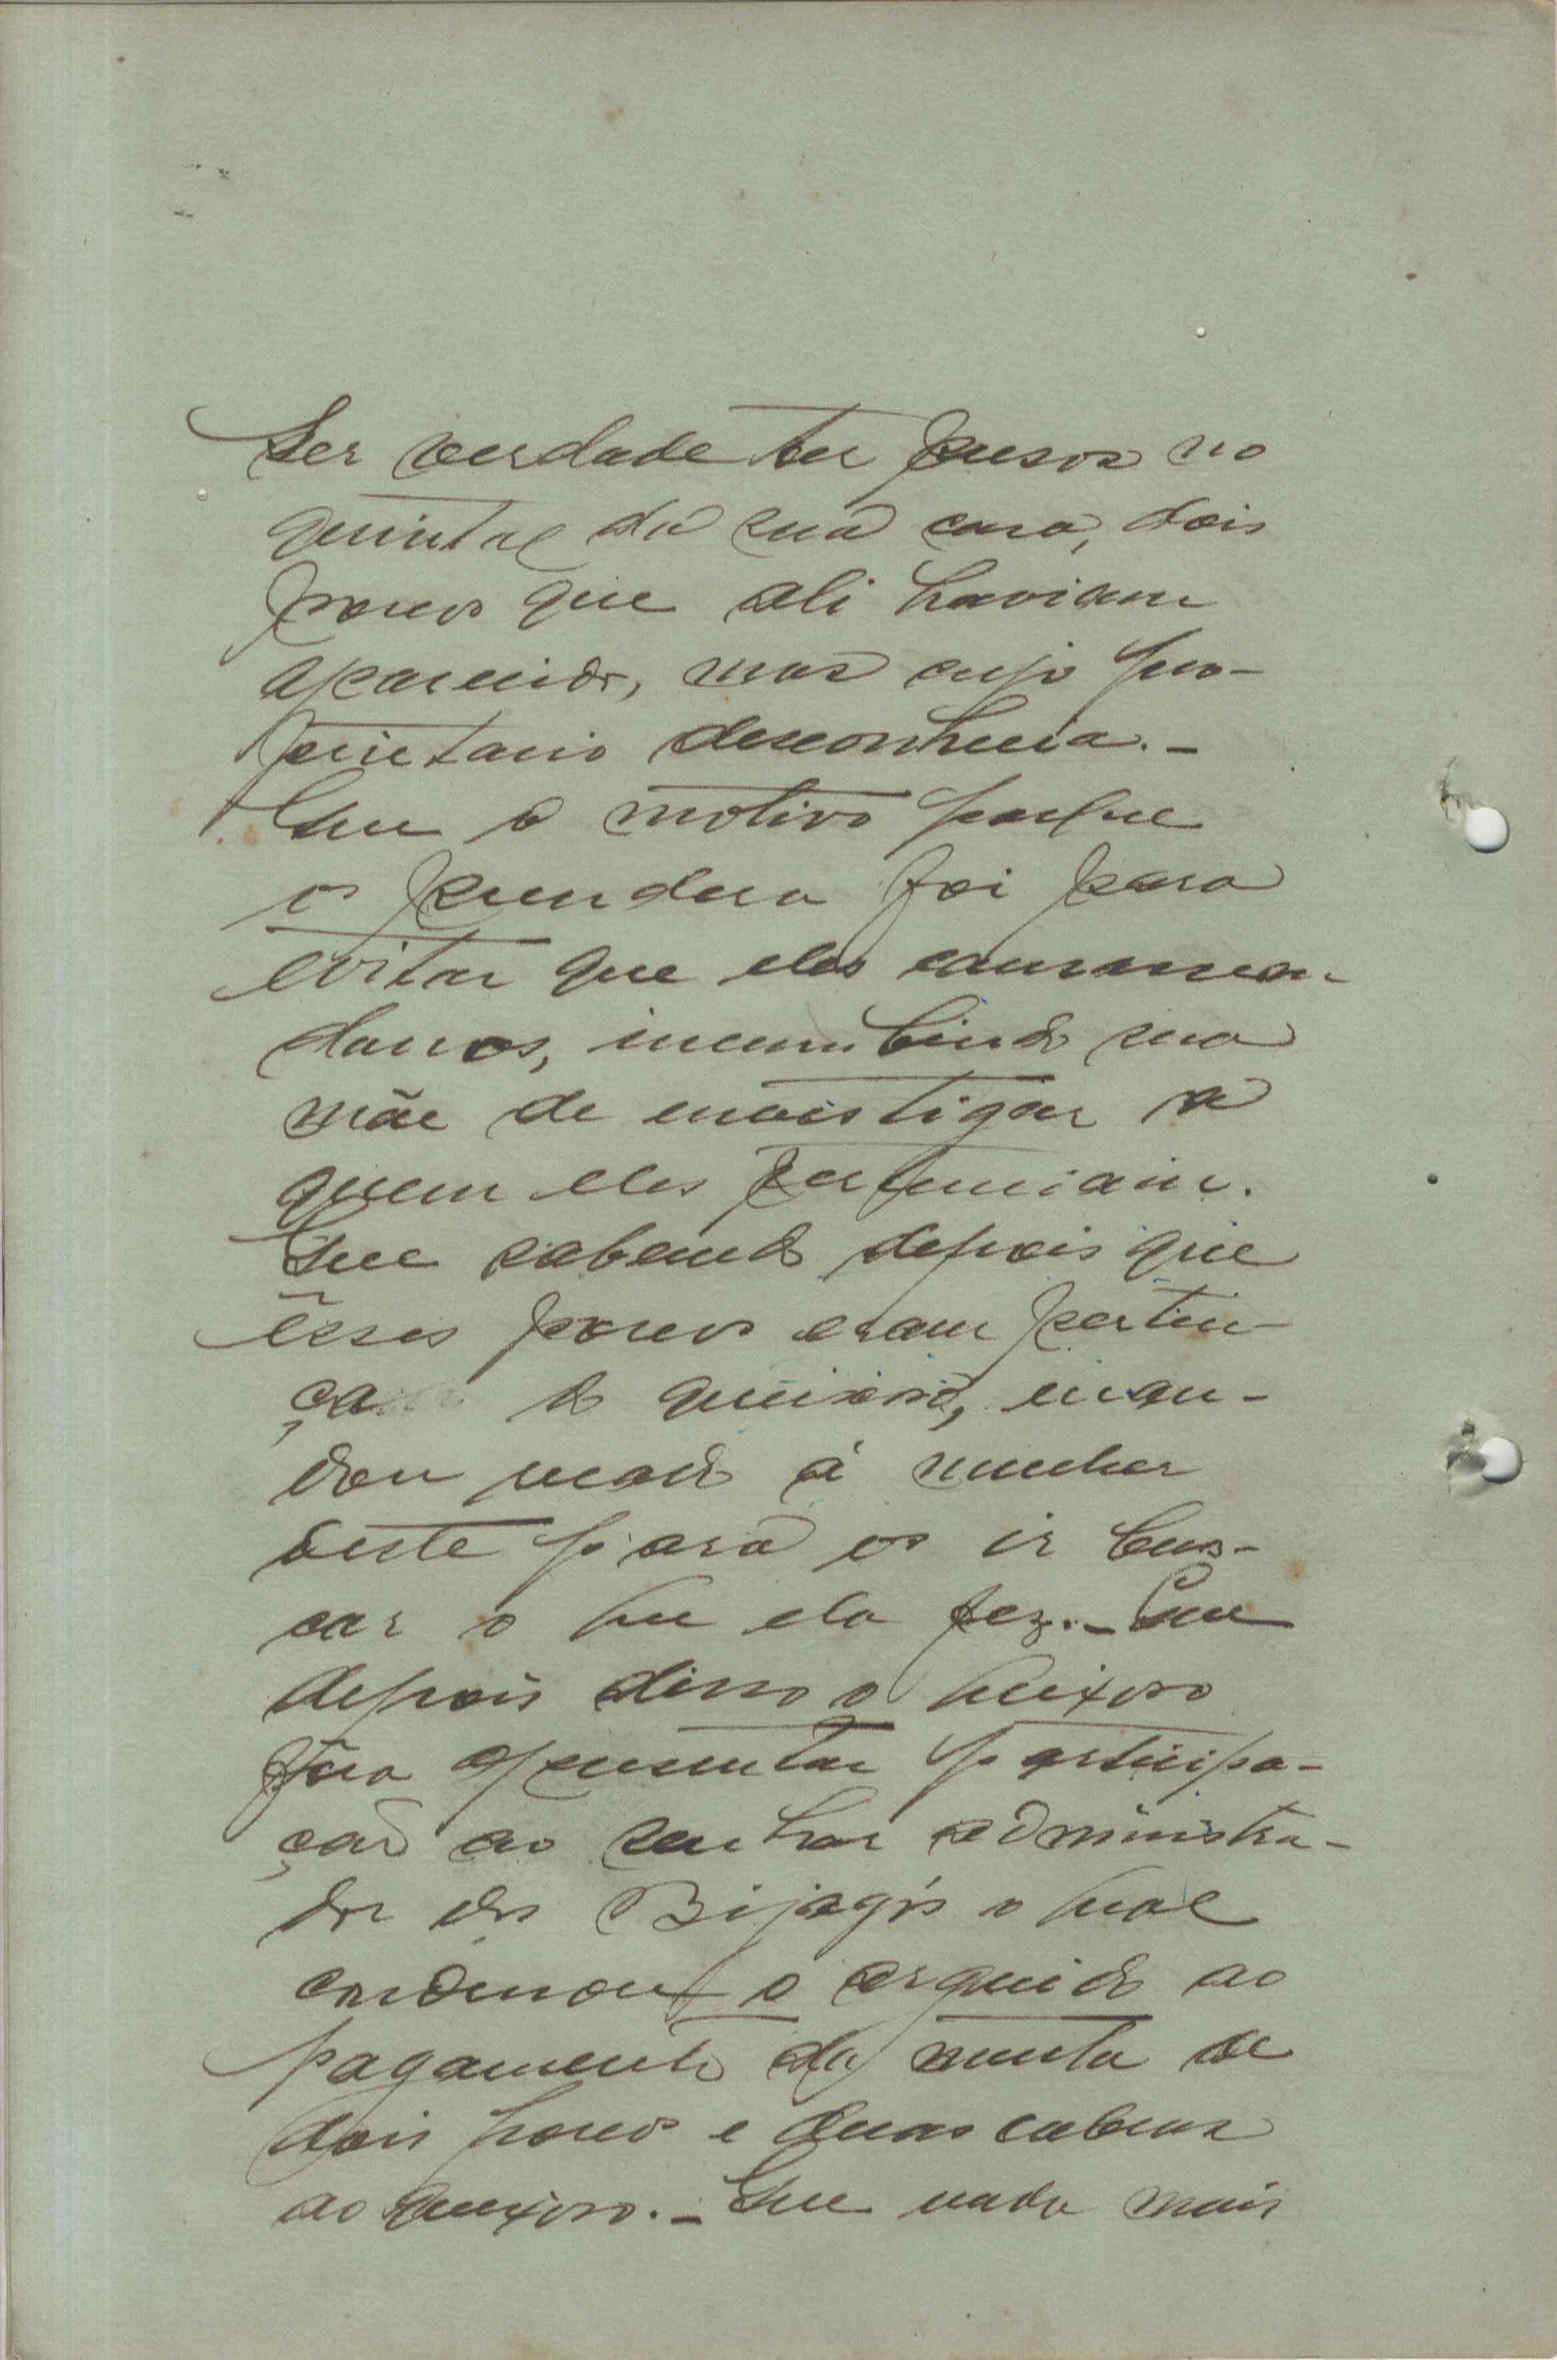 Ser verdade ter presos no
quintal da sua casa, dois
porcos que ali haviam
aparecido, mas cujo pro-
prietario desconhecia. -
Que o motivo porque
os prendera foi para
evitar que eles causassem
danos, incumbindo sua
mãe de investigar a
quem eles pertenciam.
Que sabendo depois que
êsses porcos eram perten-
ça do queixoso, man-
dou recado á mulher
deste para os ir bus-
car o que ela fez. - Que
depois disso o queixoso
fôra apresentar participa-
ção ao senhor administra-
dor dos Bijagós o qual
condenou o arguido ao
pagamento da multa de
dois porcos e duas cabras
ao queixoso. - Que nada mais